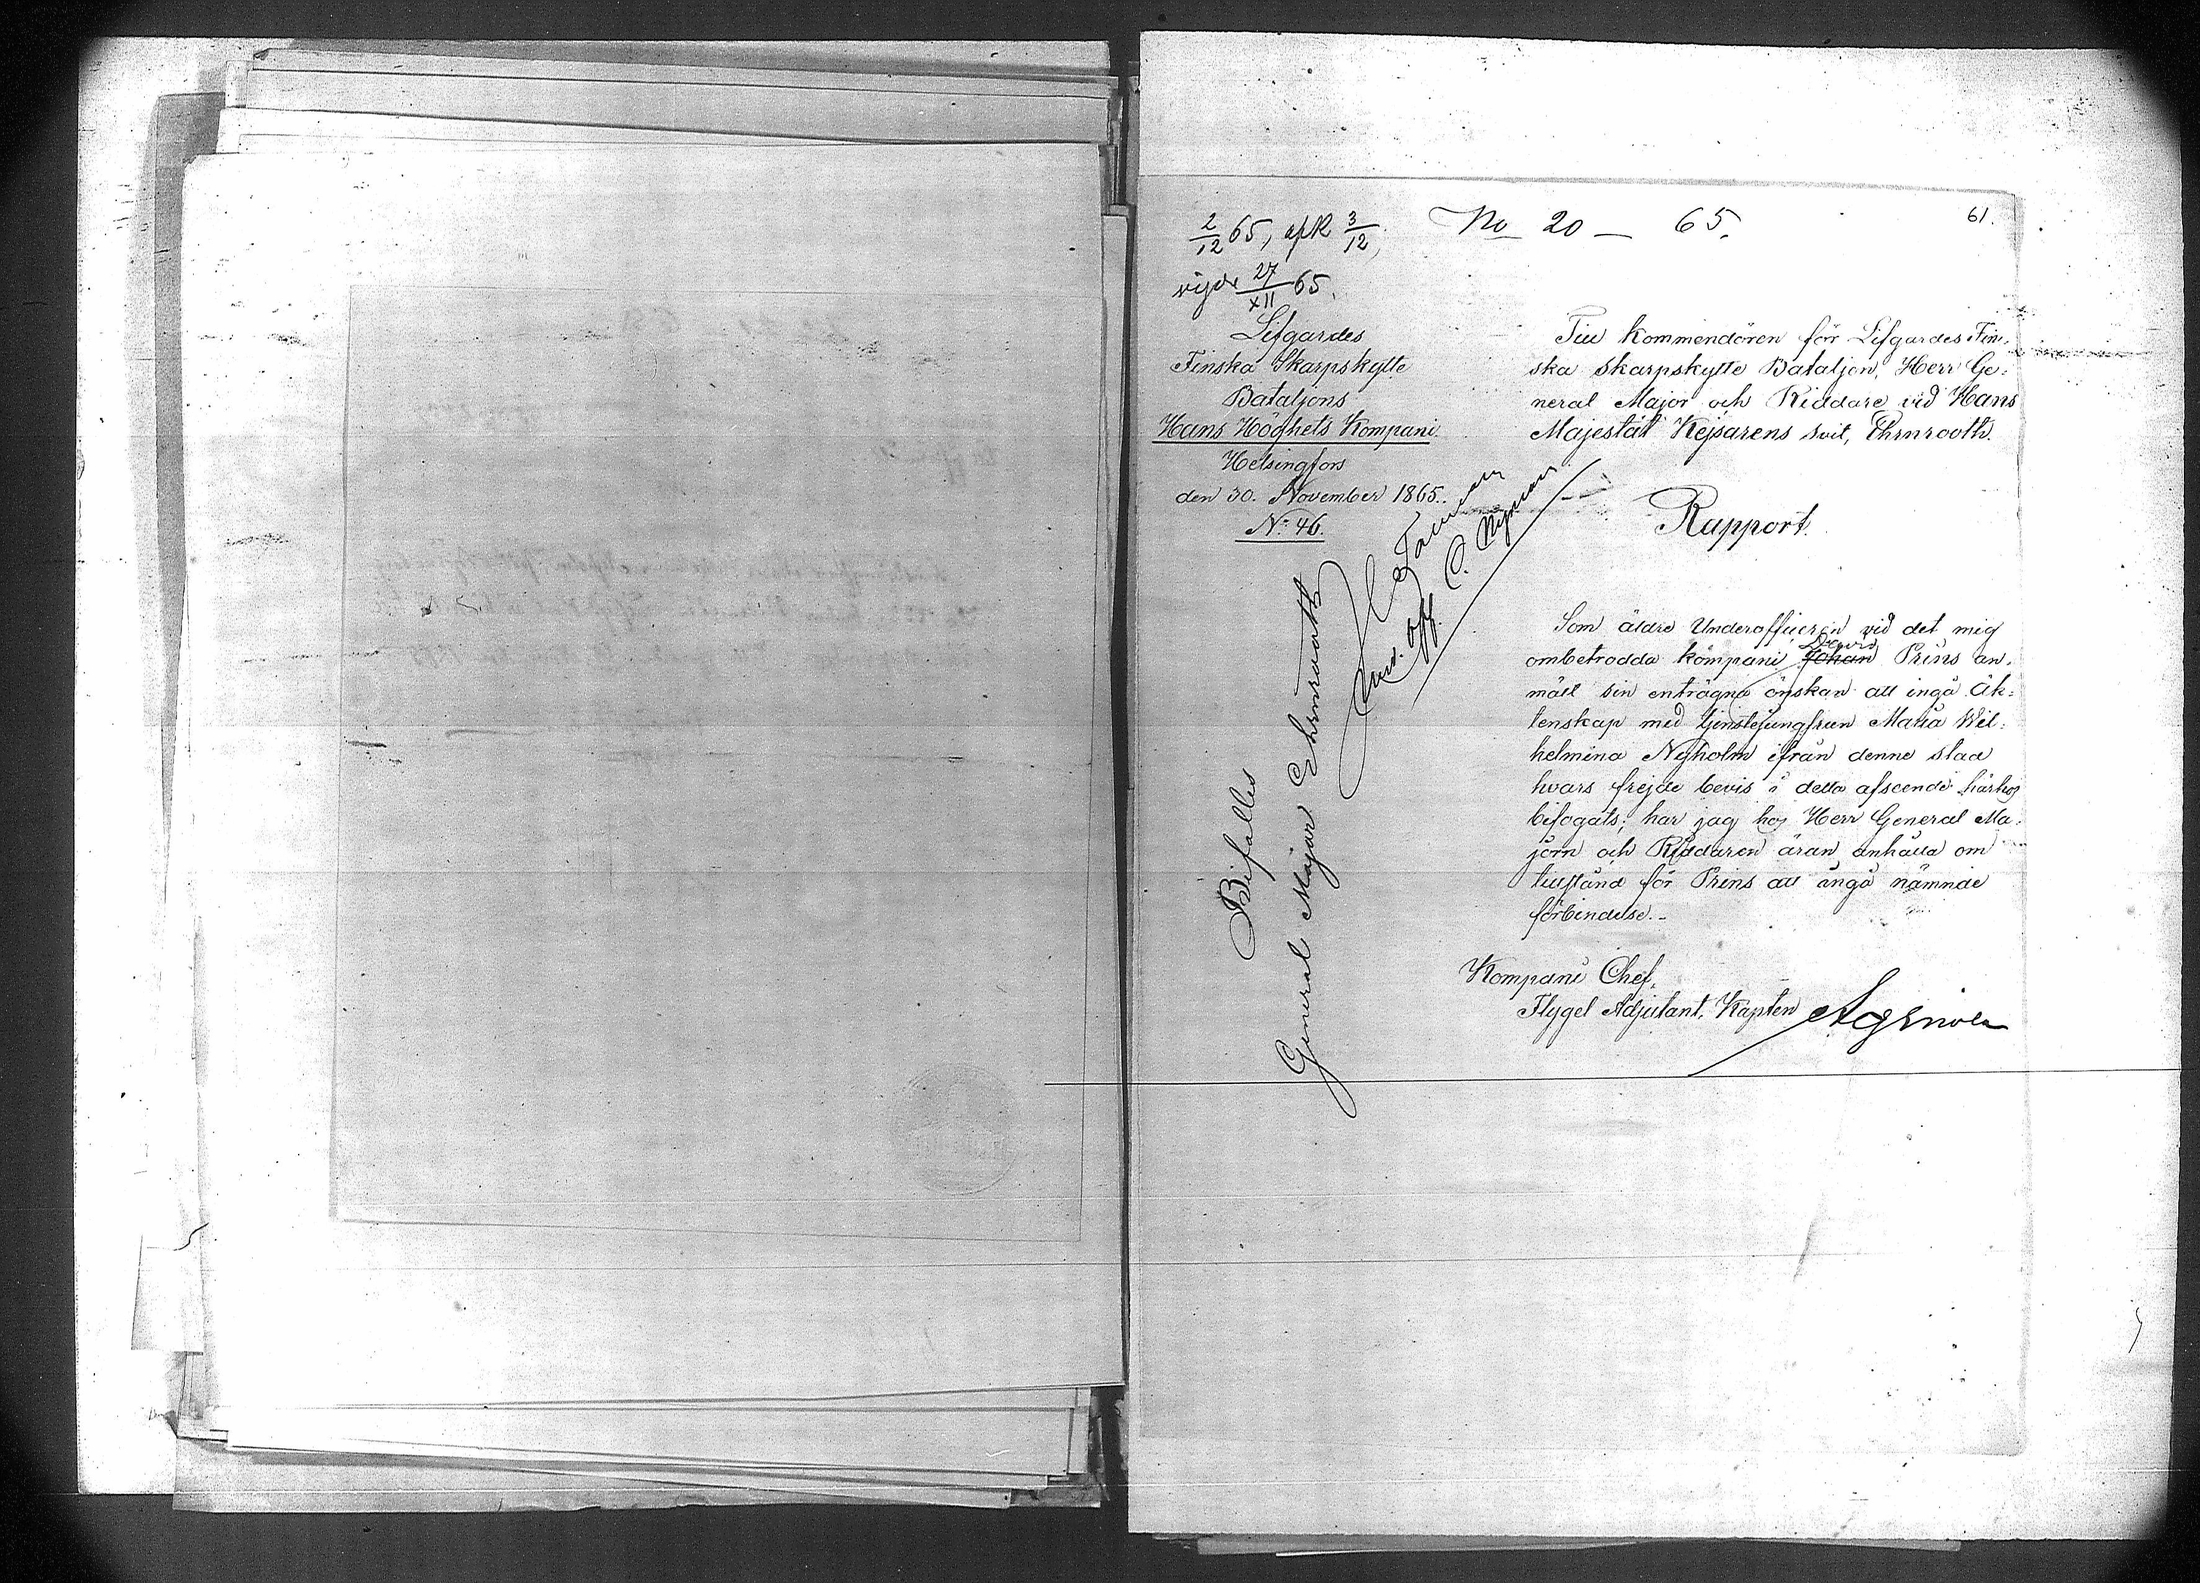 61.
No 20 — 65.
2/12 65, 3/12,
vigde 27/XII 65.
Lifgardes
Finska Skarpskytte
Bataljons
Hans Höghets Kompani
Helsingfors
den 30. November 1865.
N: 46.
Till Kommendören för Lifgardes Fin-
ska Skarpskytte Bataljon, Herr Ge-
neral Major och Riddare vid Hans
Majestät Kejsarens Svit, Ehrnrooth.
Rapport.
Som äldre Underofficeren vid det mig
David
ombetrodda kompani Johan Prins an-
mält sin enträgna önskan att ingå Äk-
tenskap med tjenstejungfrun Maria Wil-
helmina Nyholm ifrån denne stad
hvars frejde bevis i detta afseende härhos
bifogats; har jag hos Herr General Ma-
jorn och Riddaren äran anhålla om
tillstånd för Prins att ingå nämnde
förbindelse.-
Kompani Chef,
Flygel Adjutant, Kapten
Bifalles
General Major Ehrnrooth
Und. Off. C. Nyman